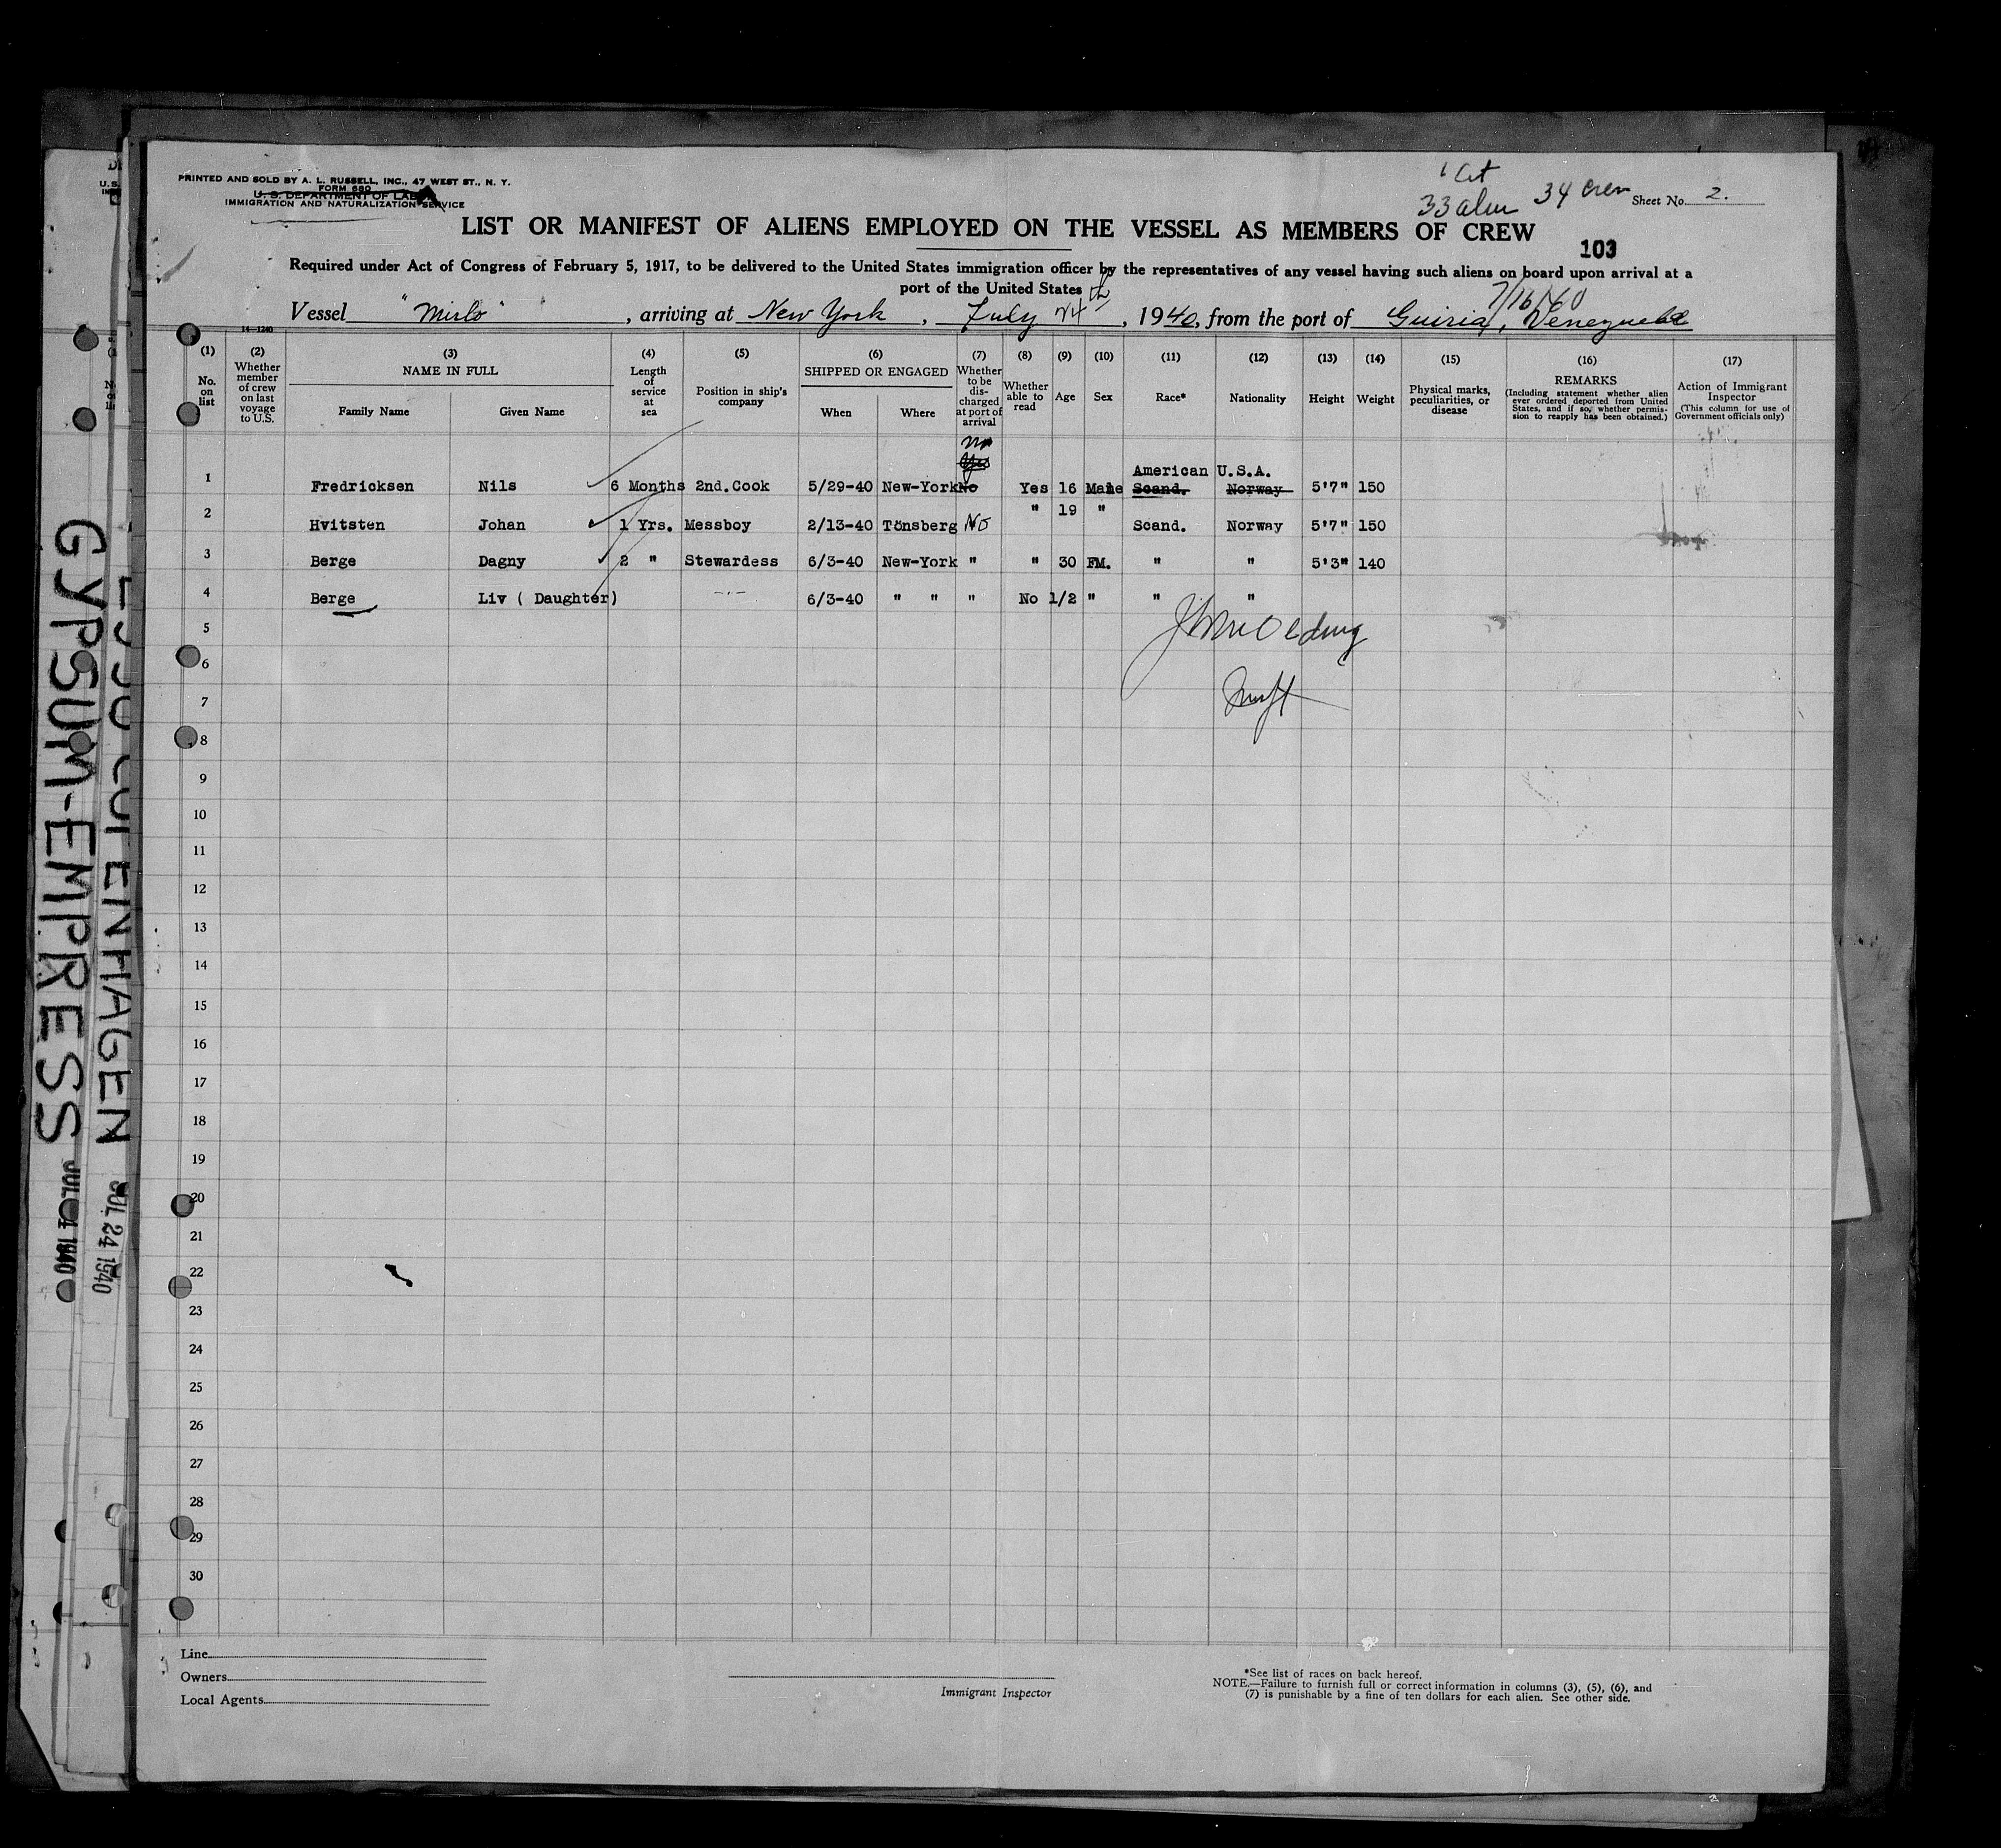 PRINTED AND SOLD BY A. L. RUSSELL, INC., 47 WEST ST., N. Y.
FORM 680
U. S. DEPARTMENT OF LABOR
IMMIGRATION AND NATURALIZATION SERVICE
1 Cit
33 alien 34 crew Sheet No. 2.
LIST OR MANIFEST OF ALIENS EMPLOYED ON THE VESSEL AS MEMBERS OF CREW
103
Required under Act of Congress of February 5, 1917, to be delivered to the United States immigration officer by the representatives of any vessel having such aliens on board upon arrival at a
port of the United States
7/16/40
Vessel "Mirlo", arriving at New York, July 24th, 1940, from the port of Guiria, Venezuela
14-1240
(1) (2) (3) (4) (5) (6) (7) (8) (9) (10) (11) (12) (13) (14) (15) (16) (17)
No. on list
Whether member of crew on last voyage to U.S.
NAME IN FULL
Family Name Given Name
Length of service at sea
Position in ship's company
SHIPPED OR ENGAGED
When Where
Whether to be discharged at port of arrival
Whether able to read
Age
Sex
Race*
Nationality
Height
Weight
Physical marks, peculiarities, or disease
REMARKS
(Including statement whether alien ever ordered deported from United States, and if so, whether permission to reapply has been obtained.)
Action of Immigrant Inspector
(This column for use of Government officials only)
No
Yes
American U.S.A.
1 Fredricksen Nils 6 Months 2nd.Cook 5/29-40 New-York No Yes 16 Male Scand. Norway 5'7" 150
2 Hvitsten Johan 1 Yrs. Messboy 2/13-40 Tönsberg No " 19 " Scand. Norway 5'7" 150
3 Berge Dagny 2 " Stewardess 6/3-40 New-York " " 30 FM. " " 5'3" 140
4 Berge Liv ( Daughter) -.- 6/3-40 " " " No 1/2 " " "
5
6
7
8
9
10
11
12
13
14
15
16
17
18
19
20
21
22
23
24
25
26
27
28
29
30
Line
Owners
Local Agents
Immigrant Inspector
*See list of races on back hereof.
NOTE.—Failure to furnish full or correct information in columns (3), (5), (6), and
(7) is punishable by a fine of ten dollars for each alien. See other side.
GYPSUM-EMPRESS
JUL 24 1940
COPENHAGEN
JUL 24 1940